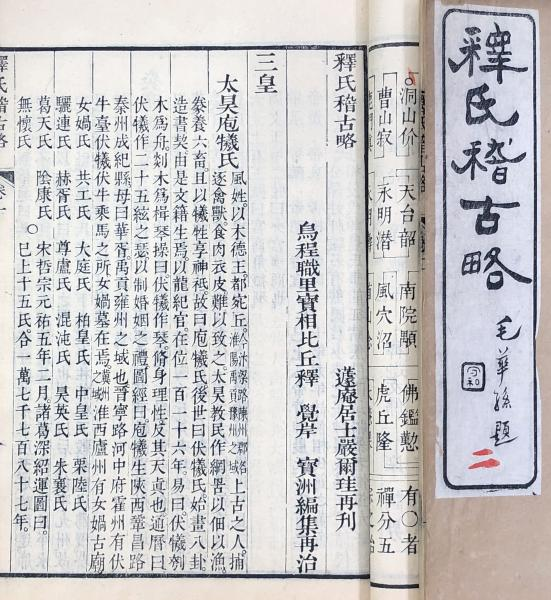 釋氏稽古略
毛華孫題
二
洞山价 天台韶 南院顒 佛鑑懃 有○者
曹山寂 永明潛 風穴沼 虎丘隆 禪分五
釋氏稽古略
蘧庵居士嚴爾珪再刊
烏程職里寶相比丘釋 覺岸 寶洲編集再治
三皇
太昊庖犧氏 風姓。以木德王都宛丘。今汴梁路陳州郡名淮陽禹貢豫州之域上古之人。捕
逐禽獸食肉衣皮難以致之太昊教民作網罟以佃以漁。
豢養六畜且以犧牲享神祇故曰庖犧氏後世曰伏犧氏始畫八卦
造書契由是文籍生焉以龍紀官。在位一百一十六年。易曰伏犧刳
木爲舟剡木爲楫琴操曰伏犧作琴。脩身理性反其天真也通曆曰
伏犧作二十五絃之瑟以制婚姻之禮圖經曰庖犧生陜西華昌路
秦州成紀縣母曰華胥。禹貢雍州之域也晉寧路河中府霍州有伏
牛臺伏犧伏牛乘馬之所女媧墓在焉。冀州之域淮西廬州有女媧古廟
女媧氏 共工氏 大庭氏 柏皇氏 中皇氏 栗陸氏
驪連氏 赫胥氏 尊盧氏 混沌氏 昊英氏 朱襄氏
葛天氏 陰康氏 ○宋哲宗元祐五年二月。諸葛深紹運圖曰。
無懷氏 已上十五氏。合一萬七千七百八十七年。
釋氏稽古略 卷一